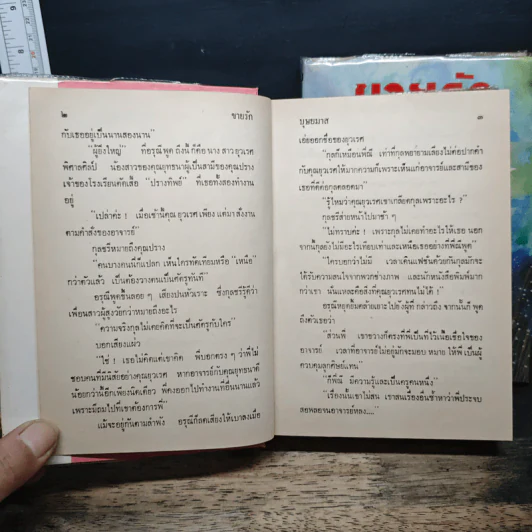 ๒
ขายรัก
กับเธออยู่เป็นนานสองนาน"
"ผู้ยิ่งใหญ่" ที่อรุณีพูดถึงนี้ ก็คือ นางสาวยุวเรศ
พิศาลศิลป์ น้องสาวของคุณยุทธนาผู้เป็นสามีของคุณปราง
เจ้าของโรงเรียนตัดเสื้อ "ปรางทิพย์" ที่เธอทั้งสองทำงาน
อยู่
"เปล่าค่ะ ! เมื่อเช้านี้คุณยุวเรศเพียงแต่มาสั่งงาน
ตามคำสั่งของอาจารย์"
กุลชรีหมายถึงคุณปราง
"คนบางคนนี่ก็แปลก เห็นใครทัดเทียมหรือ "เหนือ"
กว่าตัวแล้ว เป็นต้องวางตนเป็นศัตรูทันที"
อรุณีพูดขึ้นลอย ๆ เสียงปนหัวเราะ ซึ่งกุลชรีรู้ดีว่า
เพื่อนสาวผู้สูงวัยกว่าหมายถึงอะไร
"ความจริงกุลไม่เคยคิดที่จะเป็นศัตรูกับใคร"
บอกเสียงแผ่ว
"ใช่ ! เธอไม่คิดแต่เขาคิด พี่บอกตรง ๆ ว่าพี่ไม่
ชอบคนที่มีนิสัยอย่างคุณยุวเรศ หากอาจารย์กับคุณยุทธนาดี
น้อยกว่านี้อีกเพียงนิดเดียว พี่คงออกไปทำงานที่อื่นนานแล้ว
เพราะมีถมไปที่เขาต้องการพี่"
แม้จะอยู่กันตามลำพัง อรุณีก็ลดเสียงให้เบาลงเมื่อ
บุษยมาส
๓
เธอออกชื่อของยุวเรศ
"กุลก็เหมือนพี่ณี เท่าที่กุลพยายามเลี่ยงไม่ต่อปากคำ
กับคุณยุวเรศให้มากความก็เพราะเห็นแก่อาจารย์และสามีของ
เธอที่ดีต่อกุลตลอดมา"
"รู้ไหมว่าคุณยุวเรศเขาเกลียดกุลเพราะอะไร ?"
กุลชรีส่ายหน้าไปมาช้า ๆ
"ไม่ทราบค่ะ ! เพราะกุลไม่เคยทำอะไรให้เธอ นอก
จากนั้นกุลยังไม่มีอะไรเทียบเท่าและเหนือเธออย่างที่พี่ณีพูด"
"ใครบอกว่าไม่มี เวลาเดินแฟชั่นด้วยกันกุลมักจะ
ได้รับความสนใจจากพวกช่างภาพ และนักหนังสือพิมพ์มาก
กว่าเขา นั่นแหละคือสิ่งที่คุณยุวเรศทนไม่ได้ !"
อรุณีหยุดยิ้มคล้ายเยาะไปยังผู้ที่กล่าวถึง จากนั้นก็พูด
ถึงตัวเธอว่า
"ส่วนพี่ เขาขวางก็ตรงที่พี่เป็นที่ไว้เนื้อเชื่อใจของ
อาจารย์ เวลาที่อาจารย์ไม่อยู่มักจะมอบหมายให้พี่เป็นผู้
ควบคุมลูกศิษย์แทน"
"ก็พี่ณี มีความรู้และเป็นครูคนหนึ่ง"
"เรื่องนั้นเขาไม่สน เขาสนเรื่องอื่นซ้ำหาว่าพี่ประจบ
สอพลอจนอาจารย์หลง...."
ขายรัก